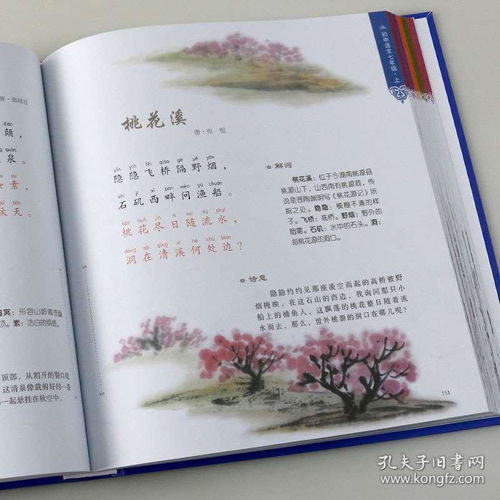 颠，
泉。
素，
秋天。
形容山岭高峻
洁白的绢绸
顶部，从割开的裂口处
这清泉像裁剪好的一条
一起悬挂在秋空中。
初中语文七年级·上
桃花溪
唐·张旭
yǐn yǐn fēi qiáo gé yě yān
隐隐飞桥隔野烟，
shí jī xī pàn wèn yú chuán
石矶西畔问渔船。
táo huā jìn rì suí liú shuǐ
桃花尽日随流水，
dòng zài qīng xī hé chù biān
洞在清溪何处边？
解词
桃花溪：位于今湖南桃源县
桃源山下，山西南有桃源洞，传
说是晋陶渊明写《桃花源记》所
指之处。隐隐：模糊不清的样
子。飞桥：高桥。野烟：野外的
烟雾。石矶：水中的石头。洞：
指桃花源的洞口。
诗意
隐隐约约见那座凌空而起的高桥被野
烟掩映，在这石山的西边，我询问那只小
船上的捕鱼人，这飘落的桃花整日随着流
水而去，那么，世外桃源的洞口在哪儿呢？
151
孔夫子旧书网
www.kongfz.com